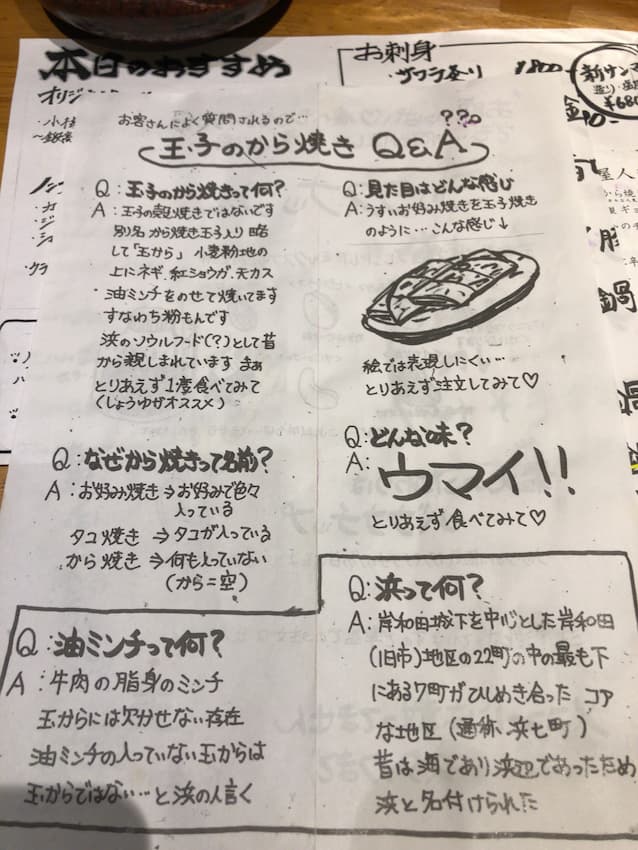 本日のおすすめ
お刺身
・サワラ造り ¥800
新サンマ
¥680
・小柱
お客さんによく質問されるので…
???
玉子のから焼き Q&A
Q:玉子のから焼きって何?
A:玉子の殻焼きではないです
別名 から焼き玉子入り 略
して「玉から」 小麦粉地の
上にネギ、紅ショウガ、天カス
・油ミンチをのせて焼いてます
すなわち粉もんです
浜のソウルフード(?)として昔
から親しまれています まぁ
とりあえず1度食べてみて
(しょうゆがオススメ)
Q:見た目はどんな感じ
A:うすいお好み焼きを玉子焼き
のように…こんな感じ↓
絵では表現しにくい…
とりあえず注文してみて♡
Q:なぜから焼きって名前?
A:お好み焼き⇒お好みで色々
入っている
タコ焼き ⇒タコが入っている
から焼き ⇒何も入っていない
(から=空)
Q:どんな味?
A:ウマイ!!
とりあえず食べてみて♡
Q:油ミンチって何?
A:牛肉の脂身のミンチ
玉からには欠かせない存在
油ミンチの入っていない玉からは
玉からではない…と浜の人言く
Q:浜って何?
A:岸和田城下を中心とした岸和田
(旧市)地区の22町の中の最も下
にある7町がひしめき合った コア
な地区(通称、浜七町)
昔は海であり浜辺であったため
浜と名付けられた
鍋